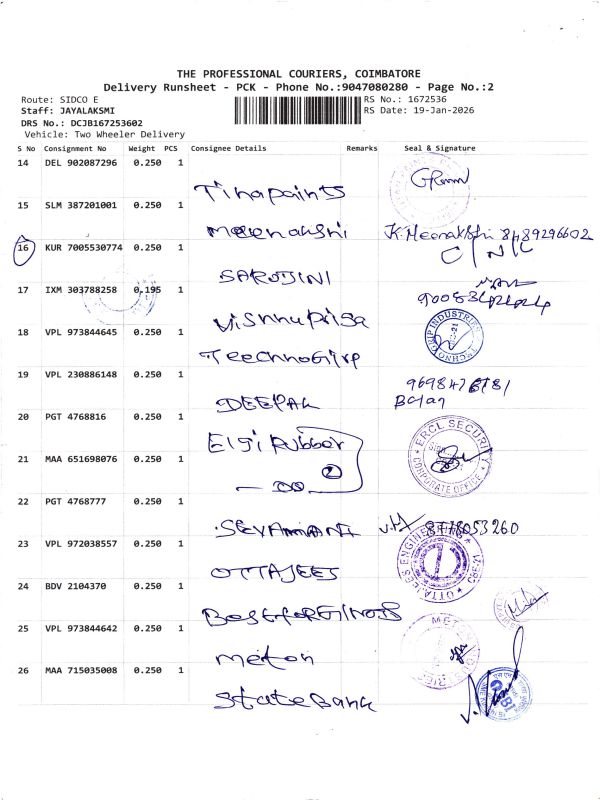 THE PROFESSIONAL COURIERS, COIMBATORE
Delivery Runsheet - PCK - Phone No.:9047080280 - Page No.:2
Route: SIDCO E
RS No.: 1672536
Staff: JAYALAKSMI
RS Date: 19-Jan-2026
DRS No.: DCJB167253602
Vehicle: Two Wheeler Delivery
S No Consignment No Weight PCS Consignee Details Remarks Seal & Signature
14 DEL 902087296 0.250 1
Tinapaints
15 SLM 387201001 0.250 1
Meenakshi K. Meenakshi 8489296602
16 KUR 7005530774 0.250 1
SAROJINI
17 IXM 303788258 0.195 1
Vishnupriya
18 VPL 973844645 0.250 1
TECHNOGRIP INDUSTRIES
19 VPL 230886148 0.250 1
DEEPAK
20 PGT 4768816 0.250 1
Elgi Rubber
ERCL SECURITY
CORPORATE OFFICE
21 MAA 651698076 0.250 1
— DO — 2
22 PGT 4768777 0.250 1
SEVAMANI
23 VPL 972038557 0.250 1
OTTAJEES
24 BDV 2104370 0.250 1
25 VPL 973844642 0.250 1
Meton
26 MAA 715035008 0.250 1
State Bank